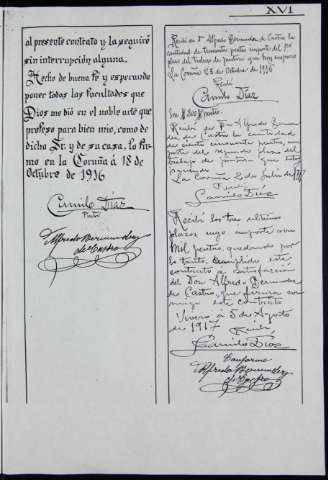 XVI
al presente contrato y la seguiré
sin interrupción alguna.
Hecho de buena fe y esperando
poner todas las facultades que
Dios me dió en el noble arte que
profeso para bien mio, como de
dicho Sr. y de su casa, lo fir-
mo en la Coruña á 18 de
Octubre de 1916
Camilo Díaz
Pintor
Alfredo Bermudez
de Castro
Recibi de Dn Alfredo Bermudez de Castro la
cantidad de
plazo del trabajo de pintura que hoy empiezo
La Coruña 23 de Octubre de 1916
Recibí
Camilo Díaz
Son
Recibí de Dn Alfredo Bermu-
dez de Castro la cantidad
de ciento cincuenta pesetas, im-
porte del segundo plazo del
trabajo de pintura que estoy
La Coruña 2 de Julio de 1917
Camilo Díaz
Recibí los tres últimos
plazos cuyo importe son
Mil pesetas, quedando por
lo tanto cumplido este
contrato á satisfacción
del Don Alfredo Bermudez
de Castro, que firma con-
migo este contrato
Vivero á 5 de Agosto
de 1917 Recibí
Camilo Díaz
Conforme
Alfredo Bermudez
de Castro